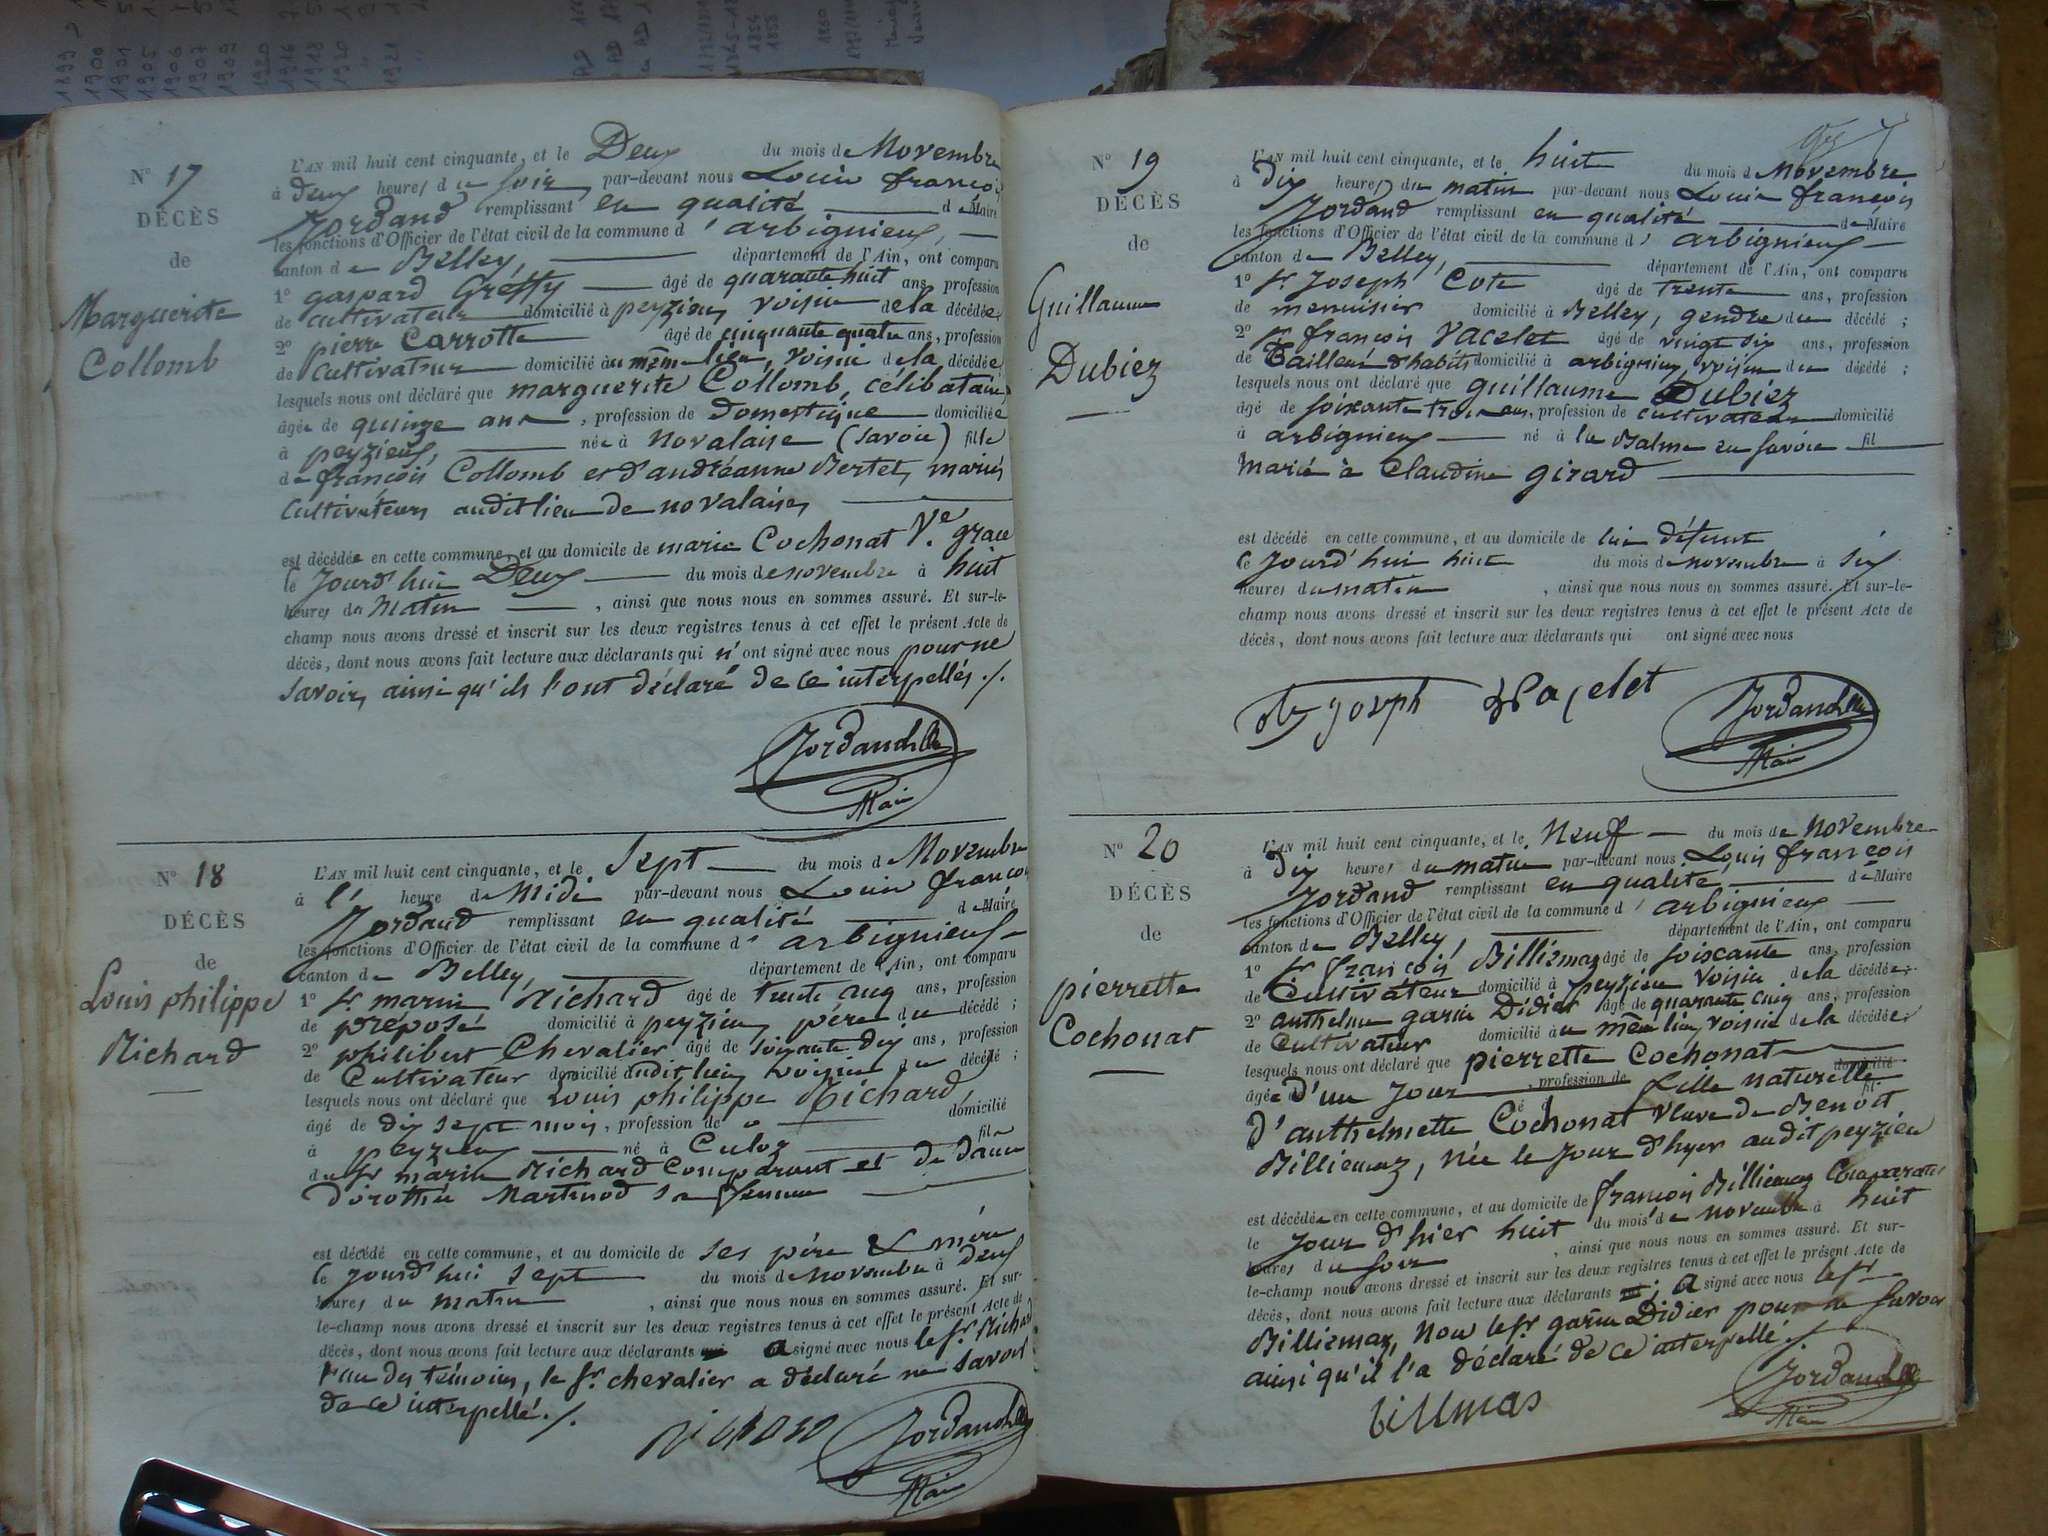 N° 17
DÉCÈS
de
Marguerite
Collomb
L'AN mil huit cent cinquante, et le Deux du mois de Novembre
à deux heures du soir par-devant nous Louis françois
Jordand remplissant en qualité de Maire
les fonctions d'Officier de l'état civil de la commune d'arbignieux,
canton de Belley, département de l'Ain, ont comparu
1° gaspard Gréffy âgé de quarante huit ans, profession
de cultivateur domicilié à peyzieu, voisin de la décédée
2° pierre Carrotte âgé de cinquante quatre ans, profession
de Cultivateur domicilié au même lieu, voisin de la décédée
lesquels nous ont déclaré que marguerite Collomb, célibataire
âgée de quinze ans, profession de Domestique domiciliée
à peyzieux, née à Novalaise (Savoie) fille
de françois Collomb et d'andréanne Bertet, mariés
Cultivateurs audit lieu de novalaise,
est décédée en cette commune, et au domicile de marie Cochonat Ve. grace
le Jourd'hui Deux du mois de novembre à huit
heures du Matin, ainsi que nous nous en sommes assuré. Et sur-le-
champ nous avons dressé et inscrit sur les deux registres tenus à cet effet le présent Acte de
décès, dont nous avons fait lecture aux déclarants qui n'ont signé avec nous pour ne
savoir, ainsi qu'ils l'ont déclaré de ce interpellés ./.
Jordand
Maire
N° 18
DÉCÈS
de
Louis philippe
Richard
L'AN mil huit cent cinquante, et le Sept du mois de Novembre
à l' heure de Midi par-devant nous Louis françois
Jordand remplissant en qualité de Maire
les fonctions d'Officier de l'état civil de la commune d'arbignieux
canton de Belley, département de l'Ain, ont comparu
1° Sr. marin Richard âgé de trente cinq ans, profession
de préposé domicilié à peyzieu, père du décédé ;
2° philibert Chevalier âgé de soixante dix ans, profession
de Cultivateur domicilié audit lieu, voisin du décédé ;
lesquels nous ont déclaré que Louis philippe Richard,
âgé de dix sept mois, profession de domicilié
à peyzieu né à Culoz fils
du Sr marin Richard Comparant et de Dame
Dorothée Martinod sa femme
est décédé en cette commune, et au domicile de ses père & mère
le Jourd'hui Sept du mois de novembre à deux
heures du matin, ainsi que nous nous en sommes assuré. Et sur-
le-champ nous avons dressé et inscrit sur les deux registres tenus à cet effet le présent Acte de
décès, dont nous avons fait lecture aux déclarants a signé avec nous le Sr. Richard
l'un des témoins, le Sr. chevalier a déclaré ne savoir
de ce interpellé. /.
Richard
Jordand
Maire
N° 19
DÉCÈS
de
Guillaume
Dubiez
L'AN mil huit cent cinquante, et le huit du mois de Novembre
à Dix heures du matin par-devant nous Louis françois
Jordand remplissant en qualité de Maire
les fonctions d'Officier de l'état civil de la commune d'arbignieux
canton de Belley, département de l'Ain, ont comparu
1° Sr Joseph Cote âgé de trente ans, profession
de menuisier domicilié à Belley, gendre du décédé ;
2° Sr françois Vacelet âgé de vingt six ans, profession
de Tailleur d'habits domicilié à arbignieu, voisin du décédé ;
lesquels nous ont déclaré que guillaume Dubiez
âgé de soixante trois ans, profession de cultivateur domicilié
à arbignieux né à la Balme en Savoie fil
Marié à Claudine girard
est décédé en cette commune, et au domicile de lui défunt
le Jourd'hui huit du mois de novembre à six
heures du matin, ainsi que nous nous en sommes assuré. Et sur-le-
champ nous avons dressé et inscrit sur les deux registres tenus à cet effet le présent Acte de
décès, dont nous avons fait lecture aux déclarants qui ont signé avec nous
Joseph Vacelet Jordand
Maire
N° 20
DÉCÈS
de
pierrette
Cochonat
L'AN mil huit cent cinquante, et le Neuf du mois de Novembre
à Dix heures du matin par-devant nous Louis françois
Jordand remplissant en qualité de Maire
les fonctions d'Officier de l'état civil de la commune d'arbignieux
canton de Belley, département de l'Ain, ont comparu
1° Sr françois Billiemaz âgé de soixante ans, profession
de Cultivateur domicilié à peyzieu voisin de la décédée
2° anthelme garin Didier âgé de quarante cinq ans, profession
de Cultivateur domicilié au même lieu, voisin de la décédée
lesquels nous ont déclaré que pierrette Cochonat domicilié
âgée d'un Jour, profession de fille naturelle
d'anthelmette Cochonat veuve de Benoit
Billiemaz, née le Jour d'hyer audit peyzieu
est décédée en cette commune, et au domicile de françois Billiemaz Comparant
le Jour d'hier huit du mois de novembre à huit
heures du soir, ainsi que nous nous en sommes assuré. Et sur-
le-champ nous avons dressé et inscrit sur les deux registres tenus à cet effet le présent Acte de
décès, dont nous avons fait lecture aux déclarants a signé avec nous le sr
Billiemaz, Non le sr garin Didier pour ne savoir
ainsi qu'il l'a déclaré de ce interpellé ./.
billmas
Jordand
Maire